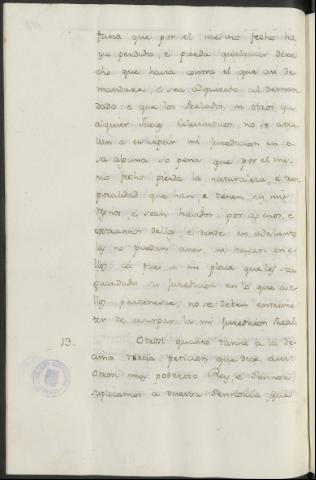 taria que por el mesmo fecho ha
ya perdido, e pierda qualquier dere
cho que havia contra el que asi de
mandare, e sea adquirido al deman
dado e que los Perlados, ni otros qua
lquier Jueces Eclesiasticos no se atre
van a ocupar mi jurediccion en co
sa alguna so pena que por el mes
mo fecho pierda la naturaleza, e tem
poralidad que han e tienen en mis
Regnos, e sean havidos por agenos, e
estraneos dellos, e dende en adelante
no puedan aver, ni hayan en e
llos, ca pues a mi place que les sea
guardada su juredicion en lo que a e
llos pertenesce, no se deben entreme
ter de ocupar la mi Juredicion Real
13. Otrosi quanto tanne a la de
cima tercia peticion que dice ansi:
Otrosi muy poderoso Rey, e Sennor
suplicamos a vuestra Sennoria, que